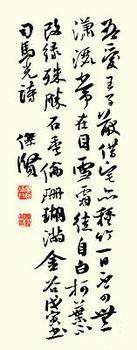 吾愛王子猷借宅亦種竹一日不可無
瀟洒常在目雪霜徒自白柯葉不
改緑殊勝石季倫珊瑚滿金谷
司馬光詩 傑賢